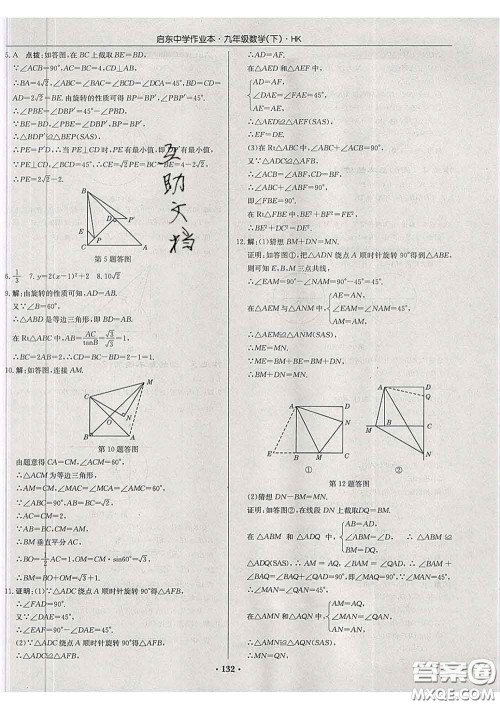 启东中学作业本·九年级数学(下)·HK
5. A 点拨:如答图,在BC上截取BE=BD=2√2.
∵∠ACB=90°,BC=AC=4,
∴BA=4√2,∠ABC=∠BAC=45°,∴BD=AD=2√2=BE.由旋转的性质可得BP=BP′,
∠PBP′=45°.
∴∠PBE=∠DBP′=45°-∠DBP.
又∵BE=BD,BP=BP′,
∴△BDP′≌△BEP(SAS),
∴PE=P′D,∴当PE有最小值时,即DP′有最小值,
∵PE⊥CD时,PE有最小值,
∵PE⊥CD,∠ACD=45°,∴CE=√2PE=BC-BE=4-2√2,
∴PE=P′D=2√2-2.
第5题答图
6. 1/3 7. y=2(x-1)²+2 8. 10√2
9. 解:由旋转的性质可知,AD=AB.
又∵∠B=60°,
∴△ABD是等边三角形,∴BD=AB.
在Rt△ABC中,∵AB=AC/tanB=√3/√3=1,
∴BC=2AB=2,∴CD=BC-BD=2-1=1.
10. 解:如答图,连接AM.
第10题答图
由题意得CA=CM,∠ACM=60°,
∴△ACM为等边三角形,
∴AM=CM,∠MAC=∠MCA=∠AMC=60°.
∵∠ABC=90°,AB=BC=√2,
∴AC=CM=2.
∵AB=BC,CM=AM,
∴BM垂直平分AC,
∴BO=1/2AC=1,OM=CM·sin60°=√3,
∴BM=BO+OM=1+√3.
11. 证明:(1)∵△ADC绕点A顺时针旋转90°得△AFB,
∴∠FAD=90°.
又∵∠EAD=45°,
∴∠EAF=∠EAD=45°,即EA是∠DEF的平分线.
(2)∵△ADC绕点A顺时针旋转90°得△AFB,
∴△ADC≌△AFB,
∴AD=AF.
在△AED和△AEF中,
AD=AF,
∠DAE=∠FAE=45°,
AE=AE,
∴△AED≌△AEF(SAS),
∴EF=DE.
(3)在Rt△ABC中,
∵∠ABC+∠C=90°,∠ABF=∠C,
∴∠ABC+∠ABF=90°,
即∠FBE=90°.
在Rt△FBE中,BE²+BF²=EF².
又∵BF=DC,EF=DE,
∴BE²+DC²=DE².
12. 解:(1)猜想BM+DN=MN.
证明:如答图①,把△ADN绕点A顺时针旋转90°得△ABE,
则可知E,B,M三点共线,
∴∠EAM=90°-∠NAM=90°-45°=45°.
在△AEM与△ANM中,
AE=AN,
∠EAM=∠NAM,
AM=AM,
∴△AEM≌△ANM(SAS),
∴ME=MN.
∵ME=BE+BM=DN+BM,
∴DN+BM=MN.
① ②
第12题答图
(2)猜想DN-BM=MN.
证明:如答图②,在线段DN上截取DQ=BM.
在△ABM和△ADQ中,
AB=AD,
∠ABM=∠D,
BM=DQ,
∴△ABM≌△ADQ(SAS),∴AM=AQ,∠BAM=∠DAQ,
∵∠BAQ+∠DAQ=90°,∴∠BAQ+∠BAM=90°.
又∵∠MAN=45°,∴∠QAN=∠MAN=45°.
在△AMN和△AQN中,
AM=AQ,
∠MAN=∠QAN,
AN=AN,
∴△AMN≌△AQN(SAS),
∴MN=QN,
∴DN-BM=MN.
·132·
互
助
文
档
答案圈
MXQE.COM